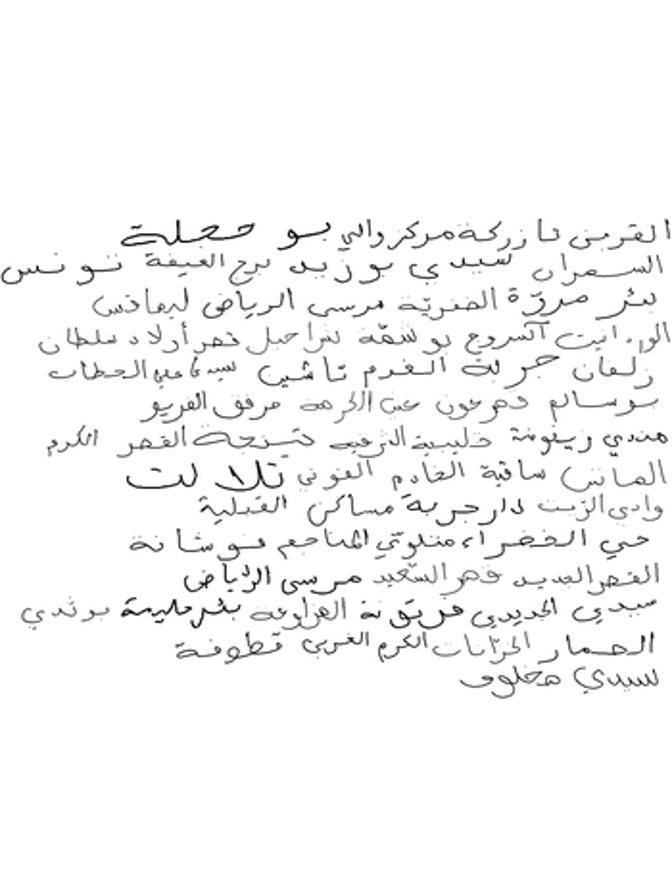 القرمين تازركة مركز والي بو حجلة
السمران سيدي بوزيد برج العيفة تونس
بئر مروّة الصغريّة مرسى الرياض ليمافس
آكسروع بوشفة شراحيل قصر أولاد سلطان
زلفان جربة الفدم تاشين سيدي علي الحطاب
بوسالم قصرعون عين الكرمة مرفق الفريو
هندي زيفونة خليبية الترقيبه تينجة القصر الكرم
الماتس ساقية الخادم الفوني تلالت
وادي الزيت دار جربة مساكن القبلية
حي الخضراء منلوتي المناجم فوشانة
القصر الجديد قصر السّعيد مرسى الرّياض
سيدي الجديدي فريتونة الهزاوعة بئر مليمة بوثدي
الحمار الحرّايات الكرم الغربي قطوفة
سيدي مخلوف